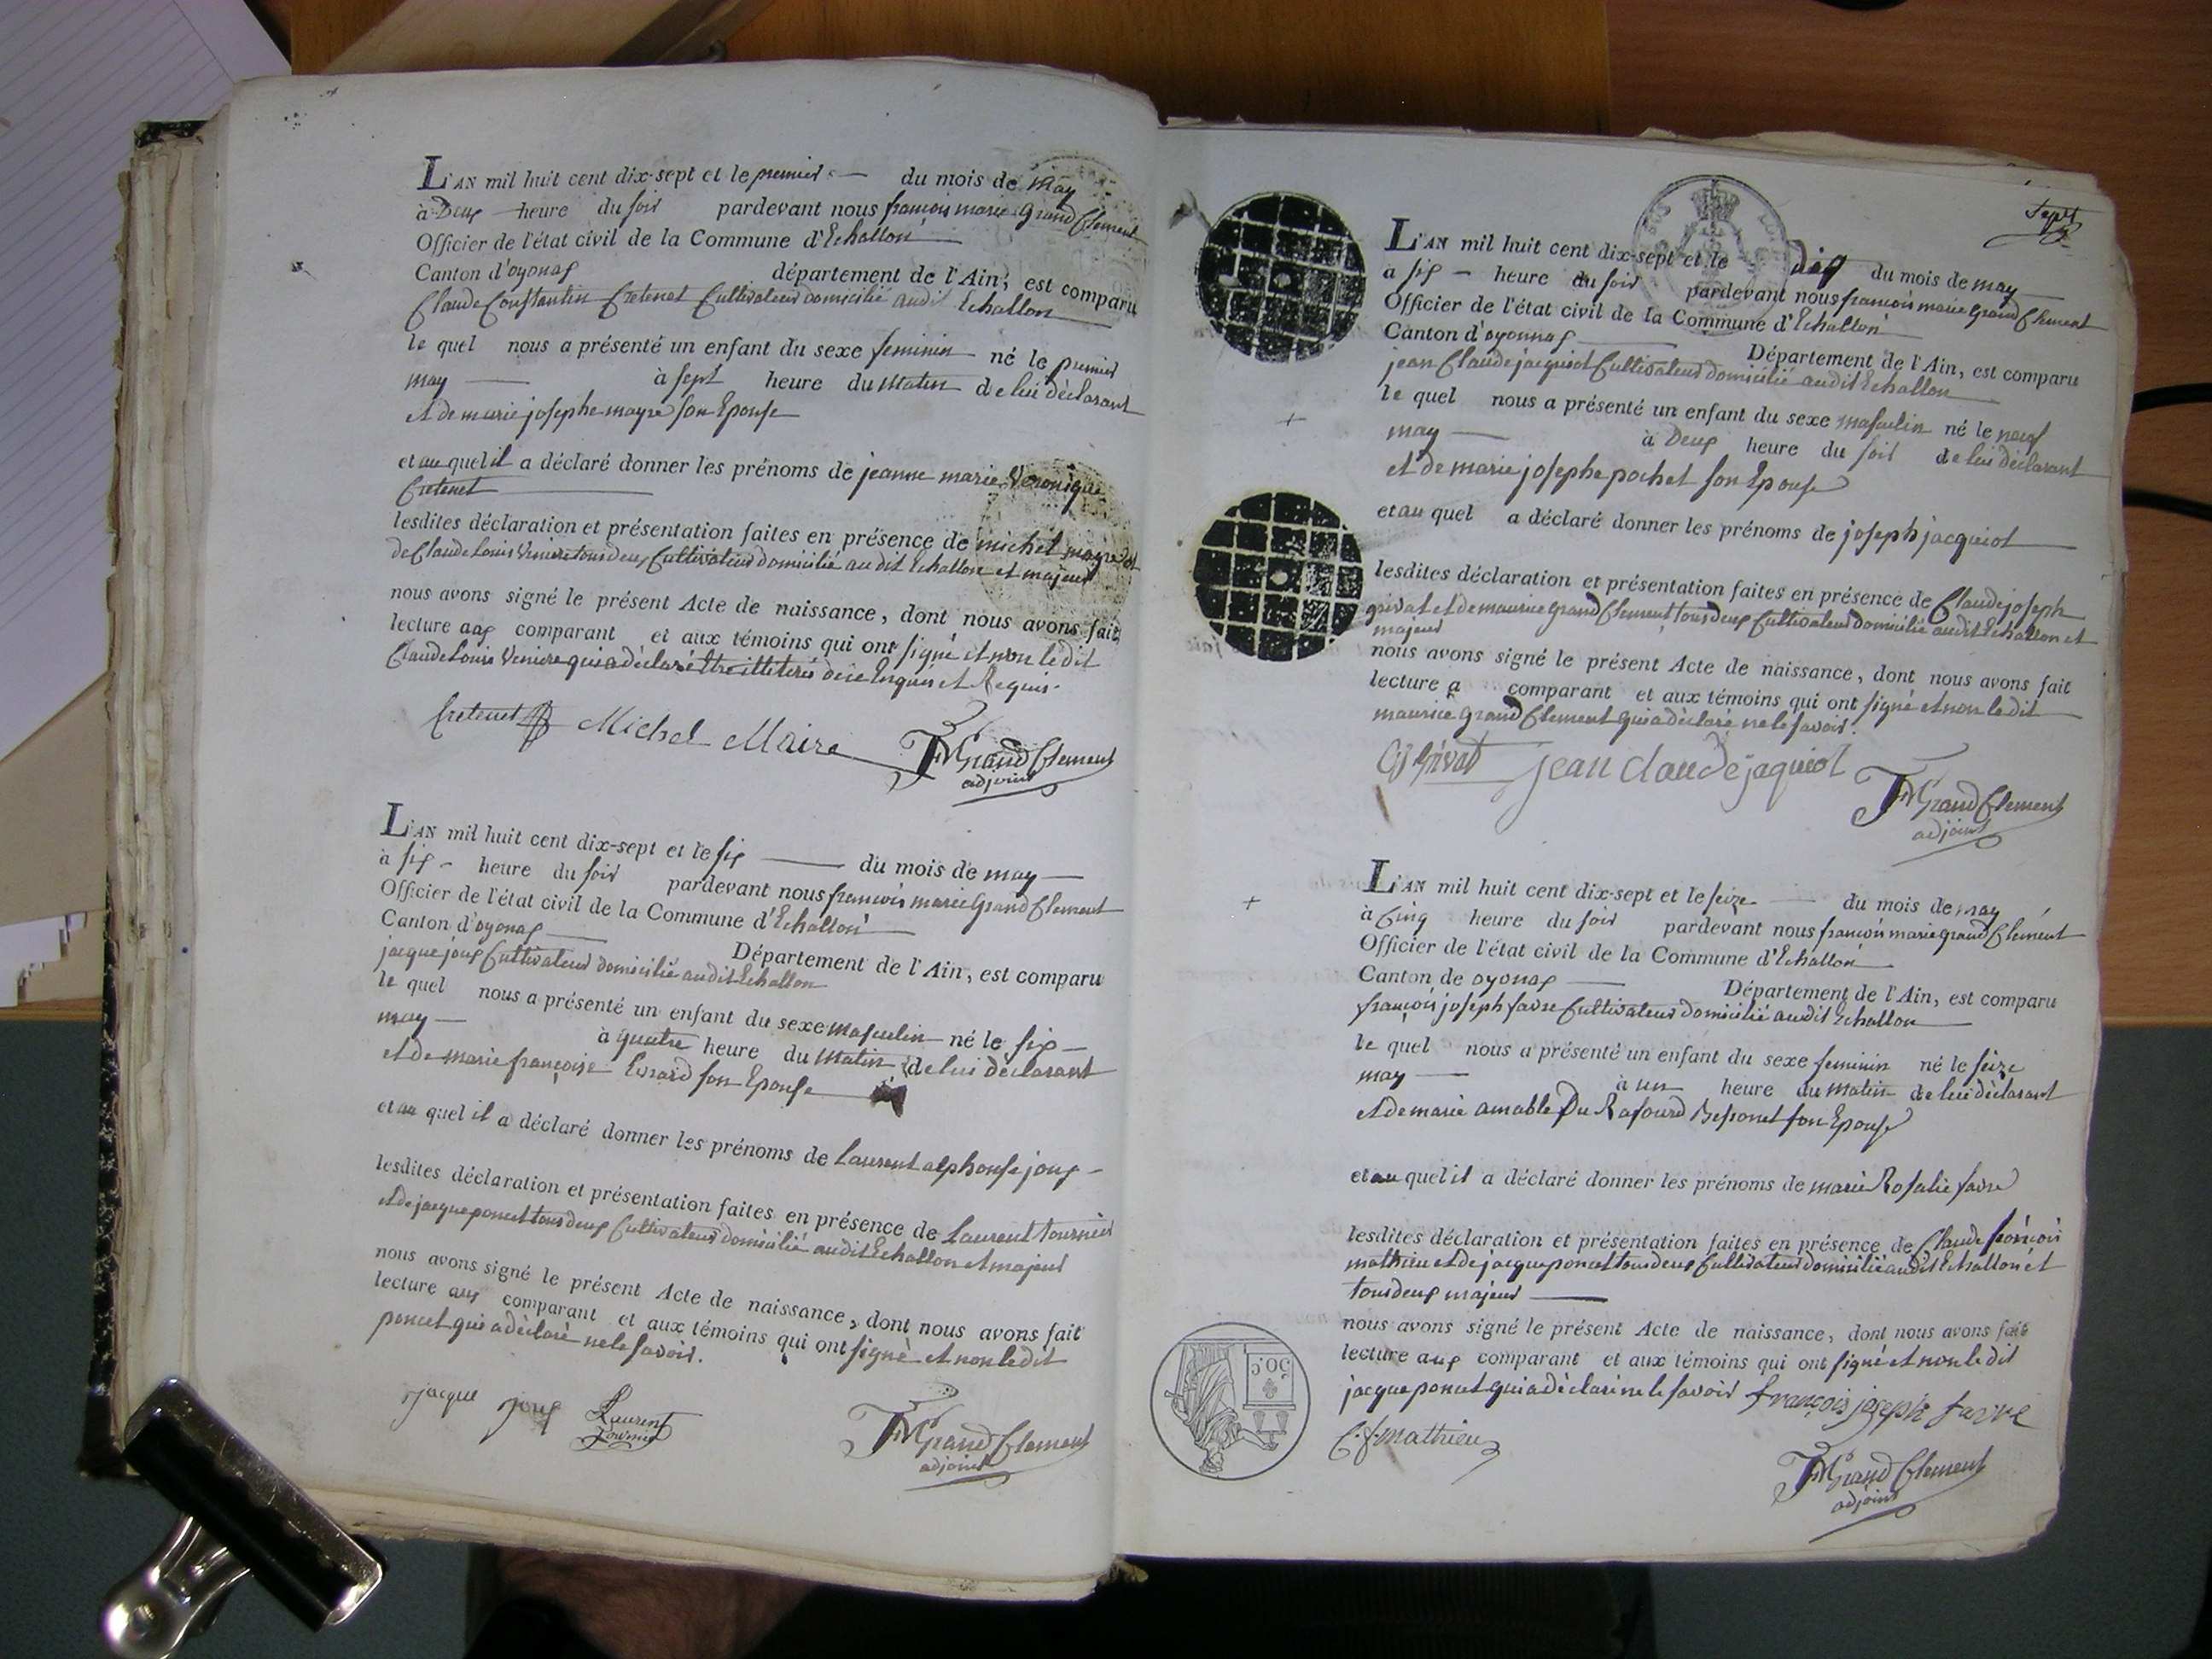 L'AN mil huit cent dix-sept et le premier du mois de may
à Deux heure du soir pardevant nous françois marie Grand Clement
Officier de l'état civil de la Commune d'Echallon
Canton d'oyonax département de l'Ain, est comparu
Claude Constantin Cretenet Cultivateur domicilié audit Echallon
le quel nous a présenté un enfant du sexe feminin né le premier
may à sept heure du matin de lui déclarant
et de marie josephe mayre son Epouse
et au quel il a déclaré donner les prénoms de jeanne marie Veronique
Cretenet
lesdites déclaration et présentation faites en présence de michel mayre et
de Claude Louis Veniere tous deux Cultivateur domicilié au dit Echallon et majeur
nous avons signé le présent Acte de naissance, dont nous avons fait
lecture aux comparant et aux témoins qui ont signé et non le dit
Claude Louis Veniere qui a déclaré être illetiré de ce Enquis et Requis.
Cretenet Michel Maire FMGrand Clement
adjoint
L'AN mil huit cent dix-sept et le six du mois de may
à six heure du soir pardevant nous francois marie Grand Clement
Officier de l'état civil de la Commune d'Echallon
Canton d'oyonax Département de l'Ain, est comparu
jacque joux Cultivateur domicilié audit Echallon
le quel nous a présenté un enfant du sexe masculin né le six
may à quatre heure du matin de lui déclarant
et de marie françoise Evrard son Epouse
et au quel il a déclaré donner les prénoms de Laurent alphonse joux
lesdites déclaration et présentation faites en présence de Laurent tournier
et de jacque poncet tous deux Cultivateur domicilié audit Echallon et majeur
nous avons signé le présent Acte de naissance, dont nous avons fait
lecture aux comparant et aux témoins qui ont signé et non le dit
poncet qui a déclaré ne le savoir.
jacque joux Laurent FMGrand Clement
tournier adjoint
Sept
L'AN mil huit cent dix-sept et le dix du mois de may
a six heure du soir pardevant nous francois marie Grand Clement
Officier de l'état civil de la Commune d'Echallon
Canton d'oyonnax Département de l'Ain, est comparu
jean Claude jacquiot Cultivateur domicilié audit Echallon
le quel nous a présenté un enfant du sexe masculin né le neuf
may à Deux heure du soir de lui déclarant
et de marie josephe pochet son Epouse
et au quel a déclaré donner les prénoms de joseph jacquiot
lesdites déclaration et présentation faites en présence de Claude joseph
grivat et de maurice Grand Clement tous deux Cultivateur domicilié audit Echallon et
majeur
nous avons signé le présent Acte de naissance, dont nous avons fait
lecture a comparant et aux témoins qui ont signé et non le dit
maurice Grand Clement qui a déclaré ne le savoir.
CJ Grivat jean claude jaquiot FMGrand Clement
adjoint
L'AN mil huit cent dix-sept et le seize du mois de may
à Cinq heure du soir pardevant nous francois marie Grand Clement
Officier de l'état civil de la Commune d'Echallon
Canton de oyonax Département de l'Ain, est comparu
françois joseph favre Cultivateur domicilié audit Echallon
le quel nous a présenté un enfant du sexe feminin né le seize
may à un heure du matin de lui déclarant
et de marie amable Du Rafourd Bessonet son Epouse
et au quel il a déclaré donner les prénoms de marie Rosalie favre
lesdites déclaration et présentation faites en présence de Claude francois
mathieu et de jacque poncet tous deux Cultivateur domicilié audit Echallon et
tous deux majeur
nous avons signé le présent Acte de naissance, dont nous avons fait
lecture aux comparant et aux témoins qui ont signé et non le dit
jacque poncet qui a déclaré ne le savoir françois joseph favre
C. f. mathieu
FMGrand Clement
adjoint
50.C